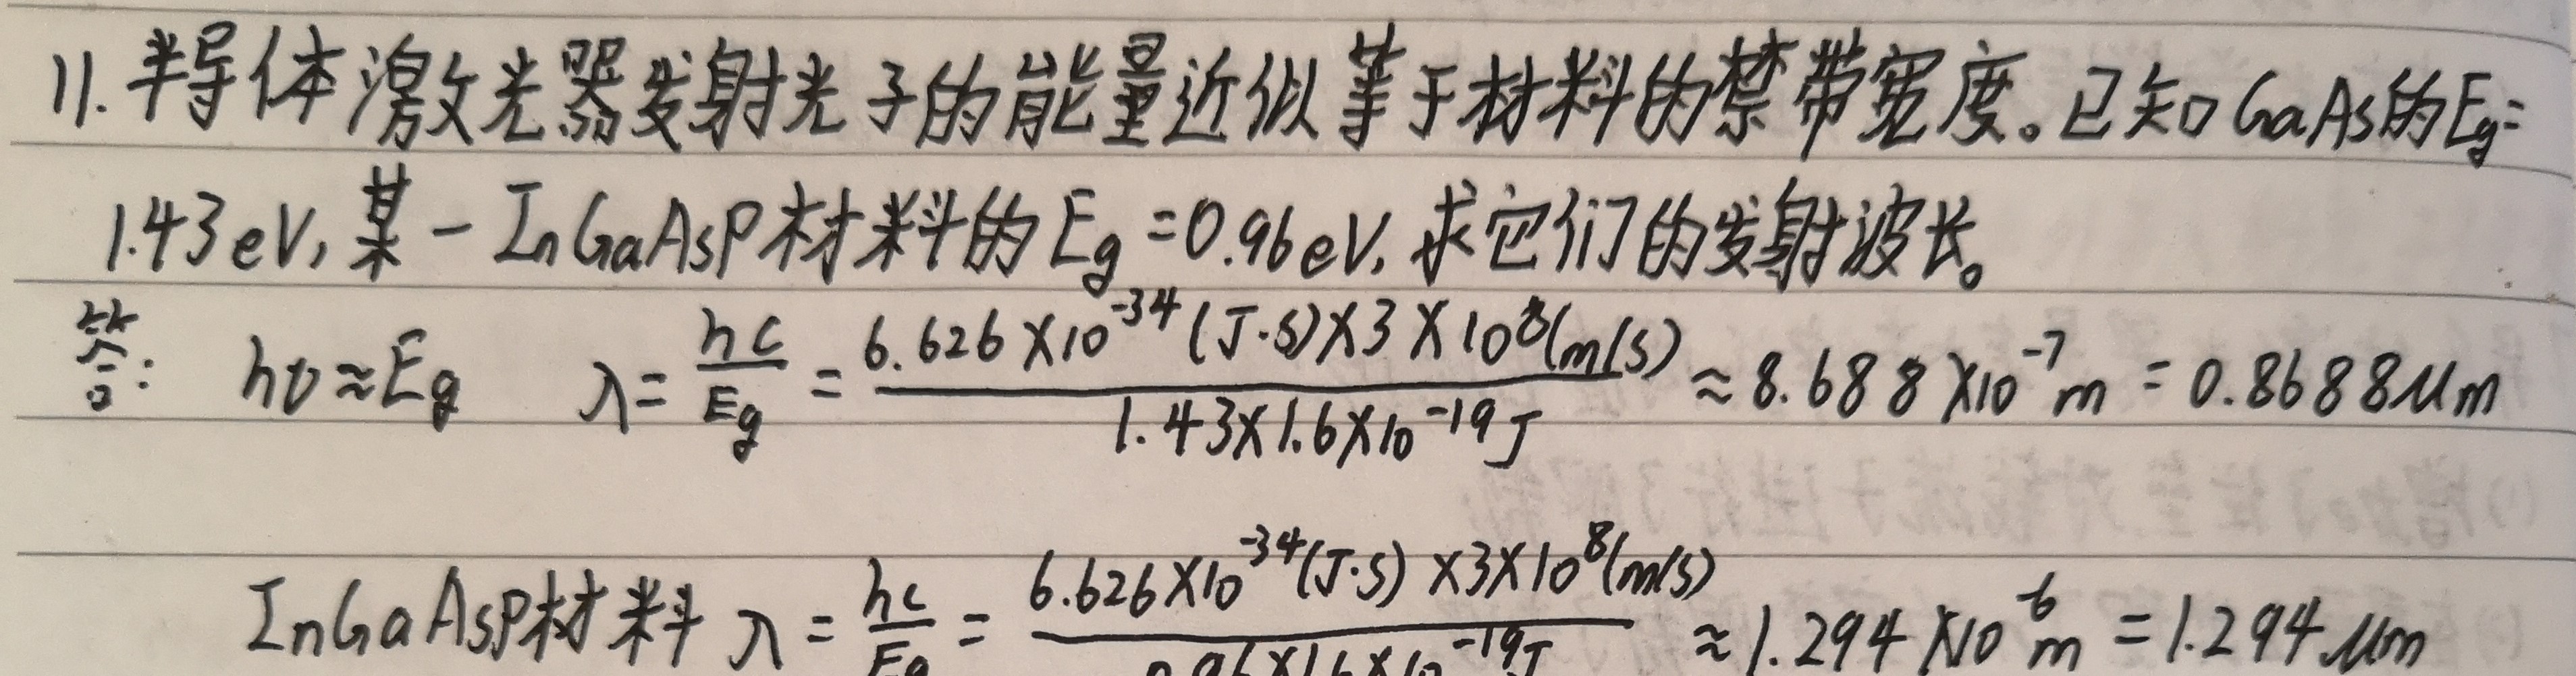 11.半导体激光器发射光子的能量近似等于材料的禁带宽度。已知GaAs的Eg=
1.43eV,某一InGaAsP材料的Eg=0.96eV,求它们的发射波长。
答: hυ≈Eg λ=hc/Eg=6.626×10⁻³⁴(J·S)×3×10⁸(m/s)/1.43×1.6×10⁻¹⁹J≈8.688×10⁻⁷m=0.8688μm
InGaAsP材料 λ=hc/Eg=6.626×10⁻³⁴(J·S)×3×10⁸(m/s)/0.96×1.6×10⁻¹⁹J≈1.294×10⁻⁶m=1.294μm